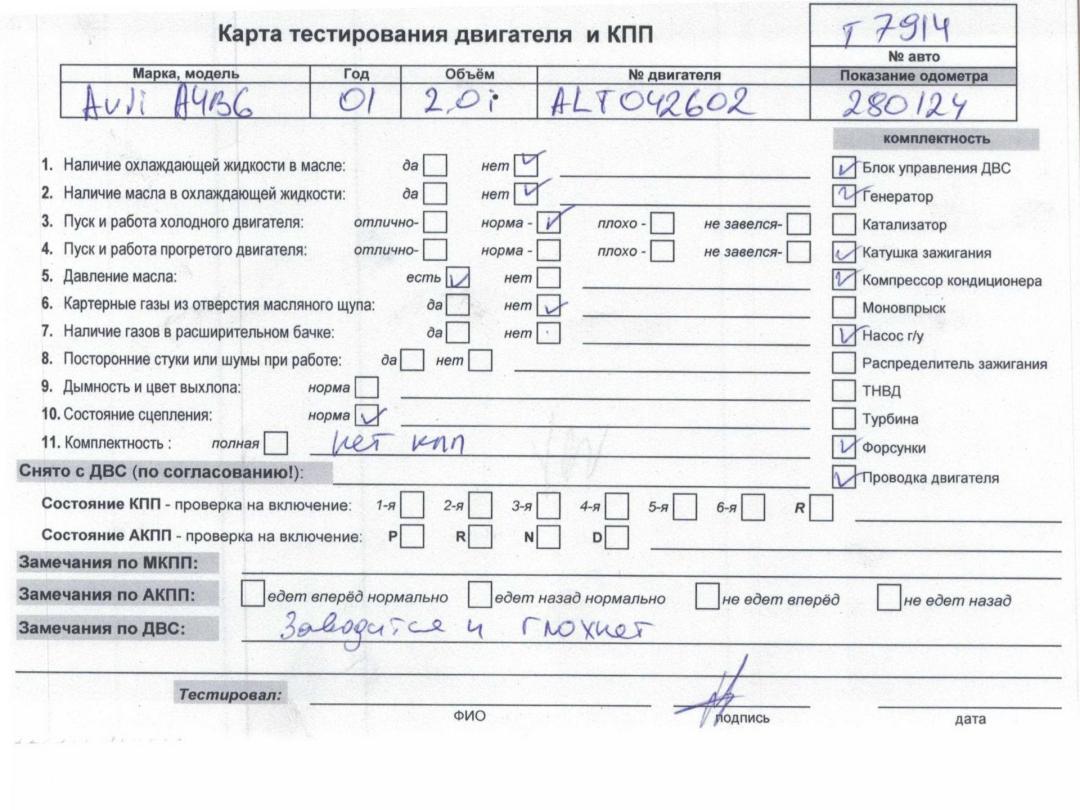 Карта тестирования двигателя и КПП
т 7914
№ авто
Марка, модель Год Объём № двигателя Показание одометра
Audi A4B6 01 2.0i ALT042602 280124
комплектность
1. Наличие охлаждающей жидкости в масле: да нет
Блок управления ДВС
2. Наличие масла в охлаждающей жидкости: да нет
Генератор
3. Пуск и работа холодного двигателя: отлично- норма - плохо - не завелся-
Катализатор
4. Пуск и работа прогретого двигателя: отлично- норма - плохо - не завелся-
Катушка зажигания
5. Давление масла: есть нет
Компрессор кондиционера
6. Картерные газы из отверстия масляного щупа: да нет
Моновпрыск
7. Наличие газов в расширительном бачке: да нет
Насос г/у
8. Посторонние стуки или шумы при работе: да нет
Распределитель зажигания
9. Дымность и цвет выхлопа: норма
ТНВД
10. Состояние сцепления: норма
Турбина
11. Комплектность : полная нет кпп
Форсунки
Снято с ДВС (по согласованию!):
Проводка двигателя
Состояние КПП - проверка на включение: 1-я 2-я 3-я 4-я 5-я 6-я R
Состояние АКПП - проверка на включение: P R N D
Замечания по МКПП:
Замечания по АКПП: едет вперёд нормально едет назад нормально не едет вперёд не едет назад
Замечания по ДВС: Заводится и глохнет
Тестировал:
ФИО подпись дата